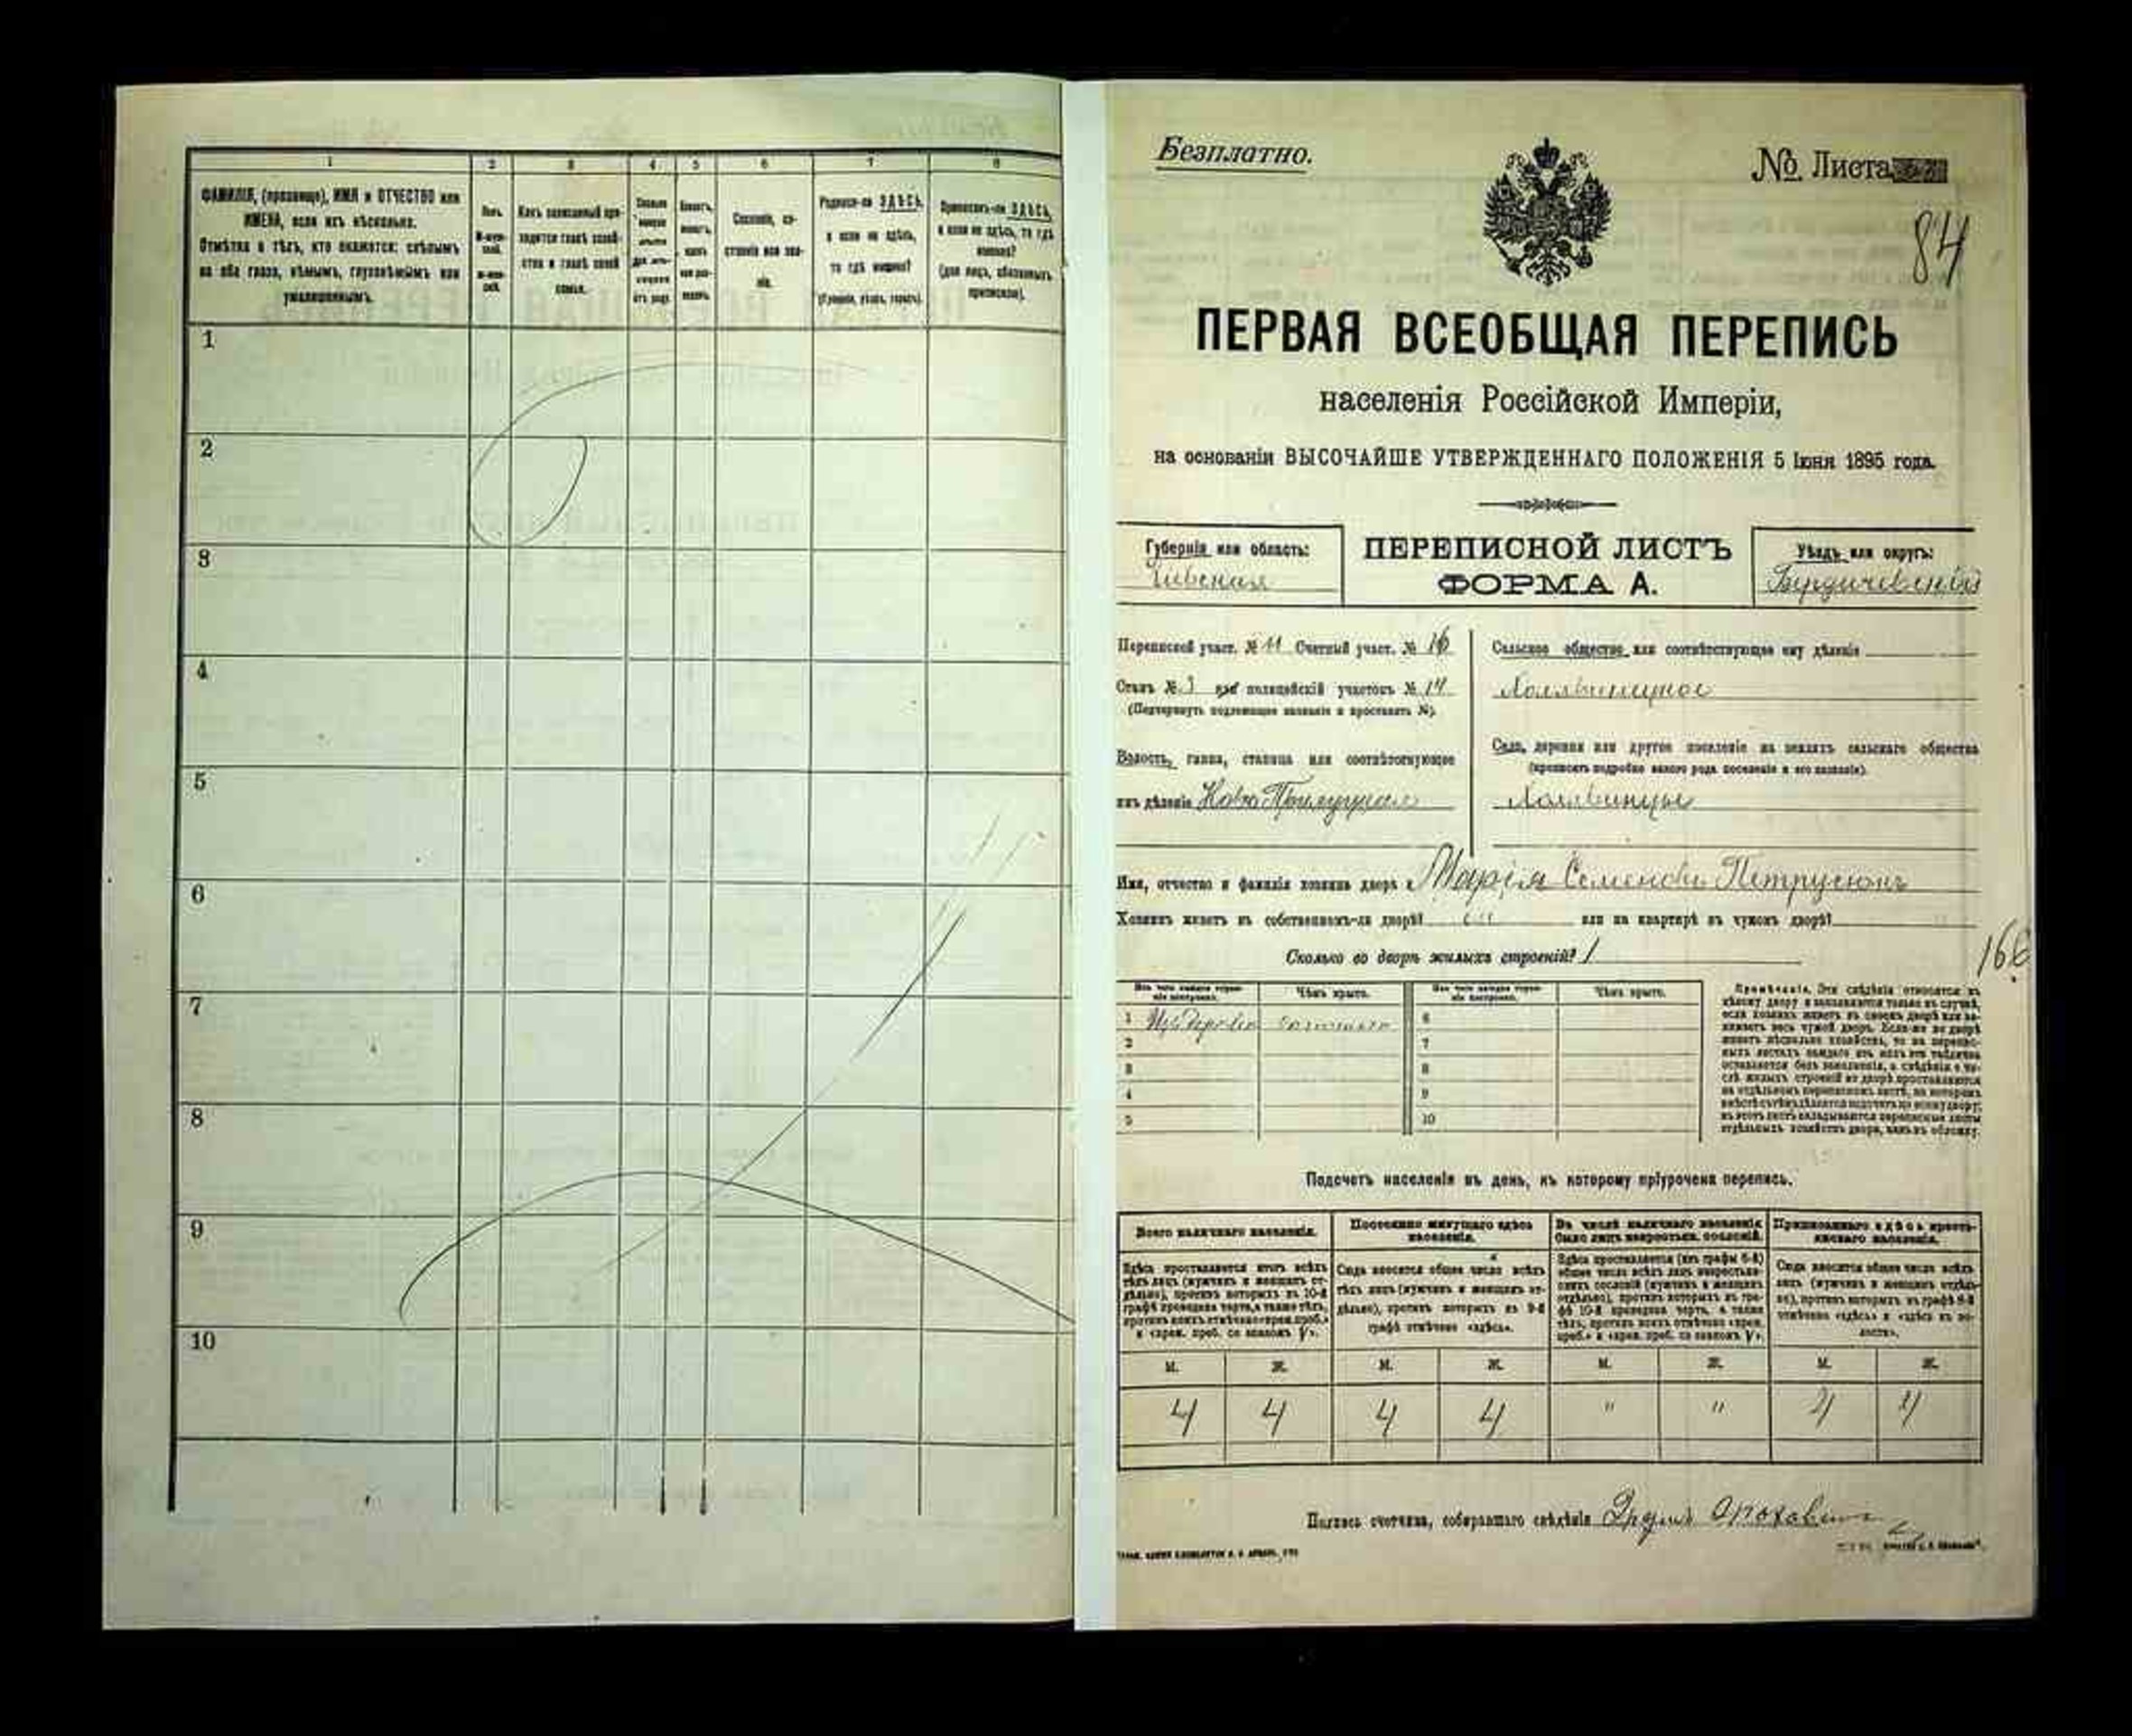 1 2 3 4 5 6 7 8
ФАМИЛІЯ, (прозвище), ИМЯ и ОТЧЕСТВО или
ИМЕНА, если ихъ нѣсколько.
Отмѣтка о тѣхъ, кто окажется: слѣпымъ
на оба глаза, нѣмымъ, глухонѣмымъ или
умалишеннымъ.
Полъ.
М-муж-
ской.
Ж-жен-
скій.
Какъ записанный при-
ходится главѣ хозяй-
ства и главѣ своей
семьи.
Сословіе, со-
стояніе или зва-
ніе.
Родился-ли ЗДѢСЬ,
а если не здѣсь,
то гдѣ именно?
(Губернія, уѣздъ, городъ).
Приписанъ-ли ЗДѢСЬ,
а если не здѣсь, то гдѣ
именно?
(для лицъ, обязанныхъ
припискою).
1
2
3
4
5
6
7
8
9
10
Безплатно.
№ Листа
84
ПЕРВАЯ ВСЕОБЩАЯ ПЕРЕПИСЬ
населенія Россійской Имперіи,
на основаніи ВЫСОЧАЙШЕ УТВЕРЖДЕННАГО ПОЛОЖЕНІЯ 5 Іюня 1895 года.
Губернія или область:
Кіевская
ПЕРЕПИСНОЙ ЛИСТЪ
ФОРМА А.
Уѣздъ или округъ:
Бердичевскій
Переписной участ. № 11 Счетный участ. № 16
Станъ № 3 или полицейскій участокъ № 14
(Подчеркнуть подлежащее названіе и проставить №).
Волость, гмина, станица или соотвѣтствующее
имъ дѣленіе Ново Прилуцкая
Сельское общество или соотвѣтствующее ему дѣленіе
Село, деревня или другое поселеніе на земляхъ сельскаго общества
(прописать подробно какого рода поселеніе и его названіе).
Имя, отчество и фамилія хозяина двора Марія Семенова Петрусюкъ
Хозяинъ живетъ въ собственномъ-ли дворѣ? или на квартирѣ въ чужомъ дворѣ?
Сколько во дворѣ жилыхъ строеній? 1
Изъ чего каждое строе-
ніе построено.
Чѣмъ крыто.
Изъ чего каждое строе-
ніе построено.
Чѣмъ крыто.
1 Изъ дерева соломою
2
3
4
5
6
7
8
9
10
Примѣчаніе. Эти свѣдѣнія относятся къ
цѣлому двору и заполняются только въ случаѣ,
если хозяинъ живетъ въ своемъ дворѣ или за-
нимаетъ весь чужой дворъ. Если-же во дворѣ
живетъ нѣсколько хозяйствъ, то на перепис-
ныхъ листахъ каждаго изъ нихъ эта табличка
оставляется безъ заполненія, а свѣдѣнія о чи-
слѣ жилыхъ строеній во дворѣ проставляются
на отдѣльномъ переписномъ листѣ, на которомъ
вмѣстѣ съ тѣмъ дѣлается подсчетъ по всему двору;
въ этотъ листъ вкладываются переписные листы
отдѣльныхъ хозяйствъ двора, какъ въ обложку.
Подсчетъ населенія въ день, къ которому пріурочена перепись.
Всего наличнаго населенія.
Постоянно живущаго здѣсь
населенія.
Въ числѣ наличнаго населенія
было лицъ некрестьян. сословій.
Приписаннаго здѣсь кресть-
янскаго населенія.
Здѣсь проставляется итогъ всѣхъ
тѣхъ лицъ (мужчинъ и женщинъ от-
дѣльно), противъ которыхъ въ 10-й
графѣ проведена черта, а также тѣхъ,
противъ коихъ отмѣчено «врем. проб.»
и «врем. проб. со знакомъ V».
Сюда вносится общее число всѣхъ
тѣхъ лицъ (мужчинъ и женщинъ от-
дѣльно), противъ которыхъ въ 9-й
графѣ отмѣчено «здѣсь».
Здѣсь проставляется (изъ графы 6-й)
общее число всѣхъ лицъ некрестьян-
скихъ сословій (мужчинъ и женщинъ
отдѣльно), противъ которыхъ въ гра-
фѣ 10-й проведена черта, а также
тѣхъ, противъ коихъ отмѣчено «врем.
проб.» и «врем. проб. со знакомъ V».
Сюда вносится общее число всѣхъ
лицъ (мужчинъ и женщинъ отдѣль-
но), противъ которыхъ въ графѣ 8-й
отмѣчено «здѣсь» и «здѣсь въ во-
лости».
М. Ж. М. Ж. М. Ж. М. Ж.
4 4 4 4 " " 4 4
Подпись счетчика, собиравшаго свѣдѣнія